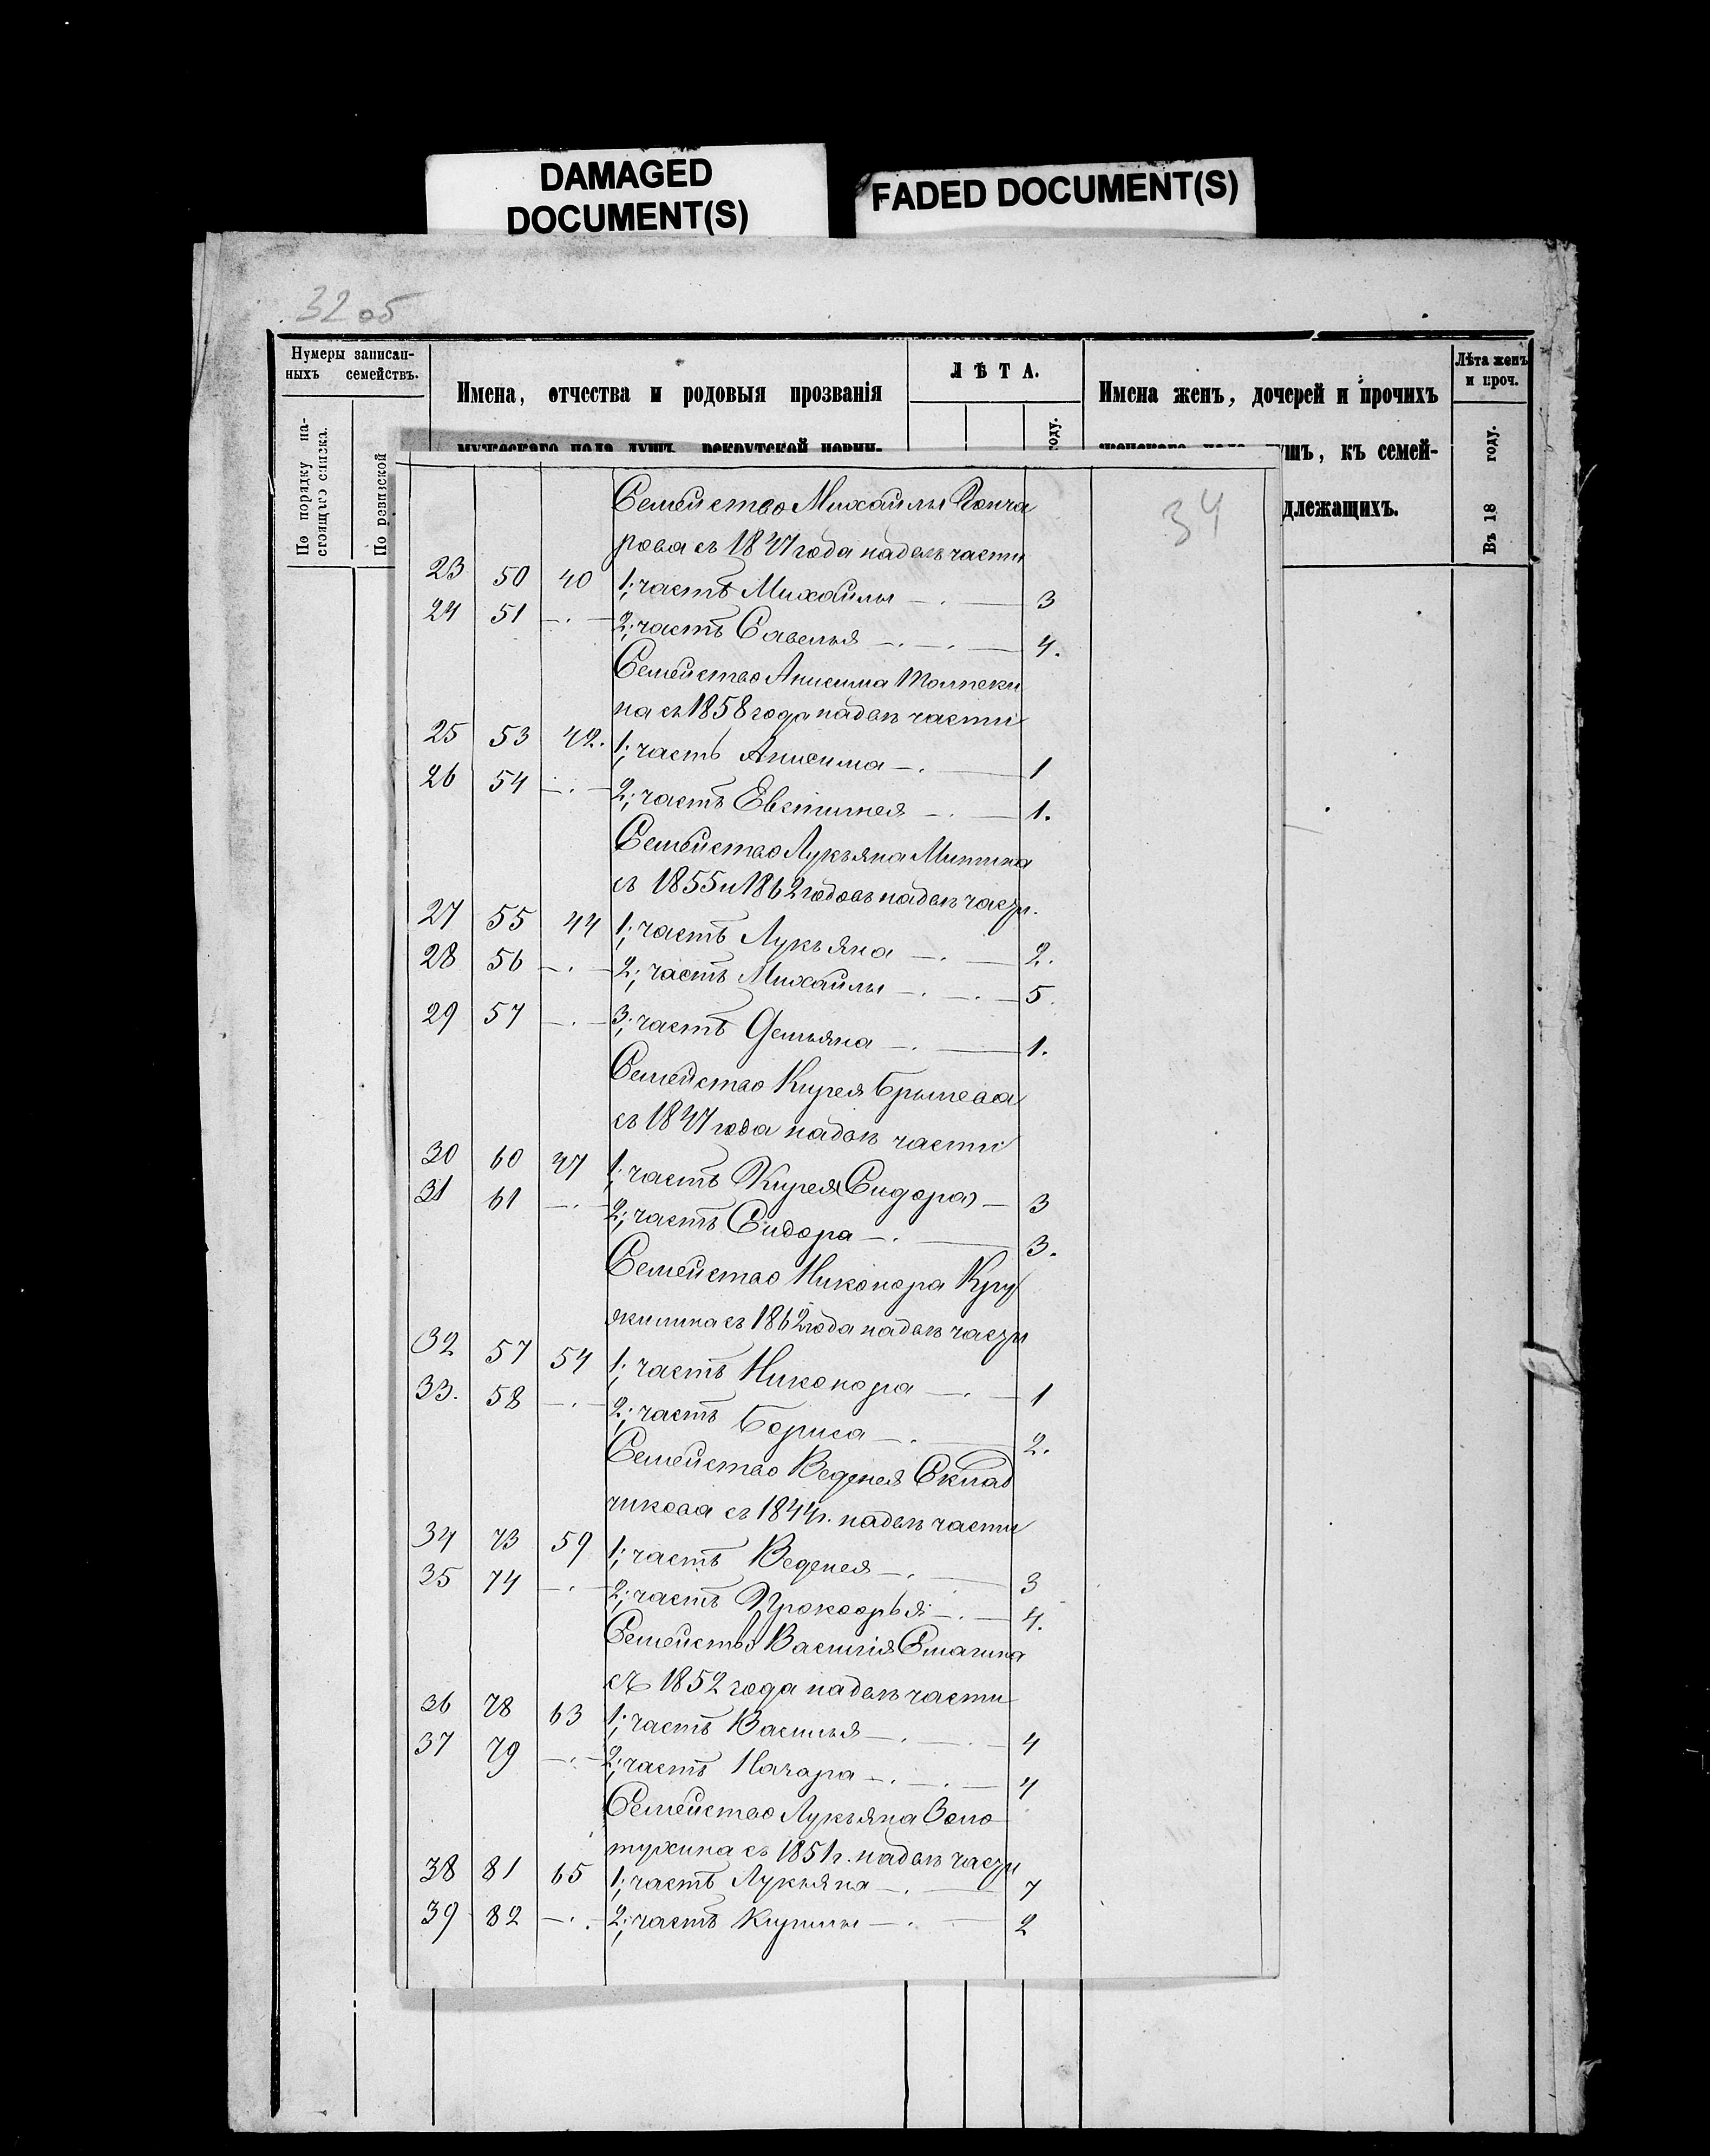 DAMAGED
DOCUMENT(S)
FADED DOCUMENT(S)
32 об
Нумеры записан-
ныхъ семействъ.
По порядку на-
стоящаго списка.
По ревизской
Имена, отчества и родовыя прозванія
мужескаго пола душъ, рекрутской повин-
ЛѢТА.
году.
Имена женъ, дочерей и прочихъ
женскаго пола душъ, къ семей-
длежащихъ.
Лѣта женъ
и проч.
Въ 18 году.
34
Семейство Михайлы Гонча
рова съ 1847 года на двѣ части
23 50 40 1; часть Михайлы 3
24 51 2; часть Савелья 4.
Семейство Анисима
на съ 1858 года на двѣ части
25 53 42. 1; часть Анисима 1
26 54 2; часть 1.
Семейство Лукьяна Митина
съ 1855 и 1862 годовъ на
27 55 44 1; часть Лукьяна 2.
28 56 2; часть Михайлы 5.
29 57 3; часть Демьяна 1.
Семейство Кирея
съ 1847 года на двѣ части
30 60 47 1; часть Кирея (Сидора) 3
31 61 2; часть Сидора 3.
Семейство Никонора Кру
жилина съ 1862 года на двѣ части
32 57 54 1; часть Никонора 1
33. 58 2; часть Бориса 2.
Семейство Веденея Склад
чикова съ 1844 г. на двѣ части
34 73 59 1; часть Веденея 3
35 74 2; часть Прокофья 4.
Семейство Василія
съ 1852 года на двѣ части
36 78 63 1; часть Василья 4
37 79 2; часть Назара 4
Семейство Лукьяна Золо
тухина съ 1851 г. на двѣ части
38 81 65 1; часть Лукьяна 7
39 82 2; часть Кирилы 2